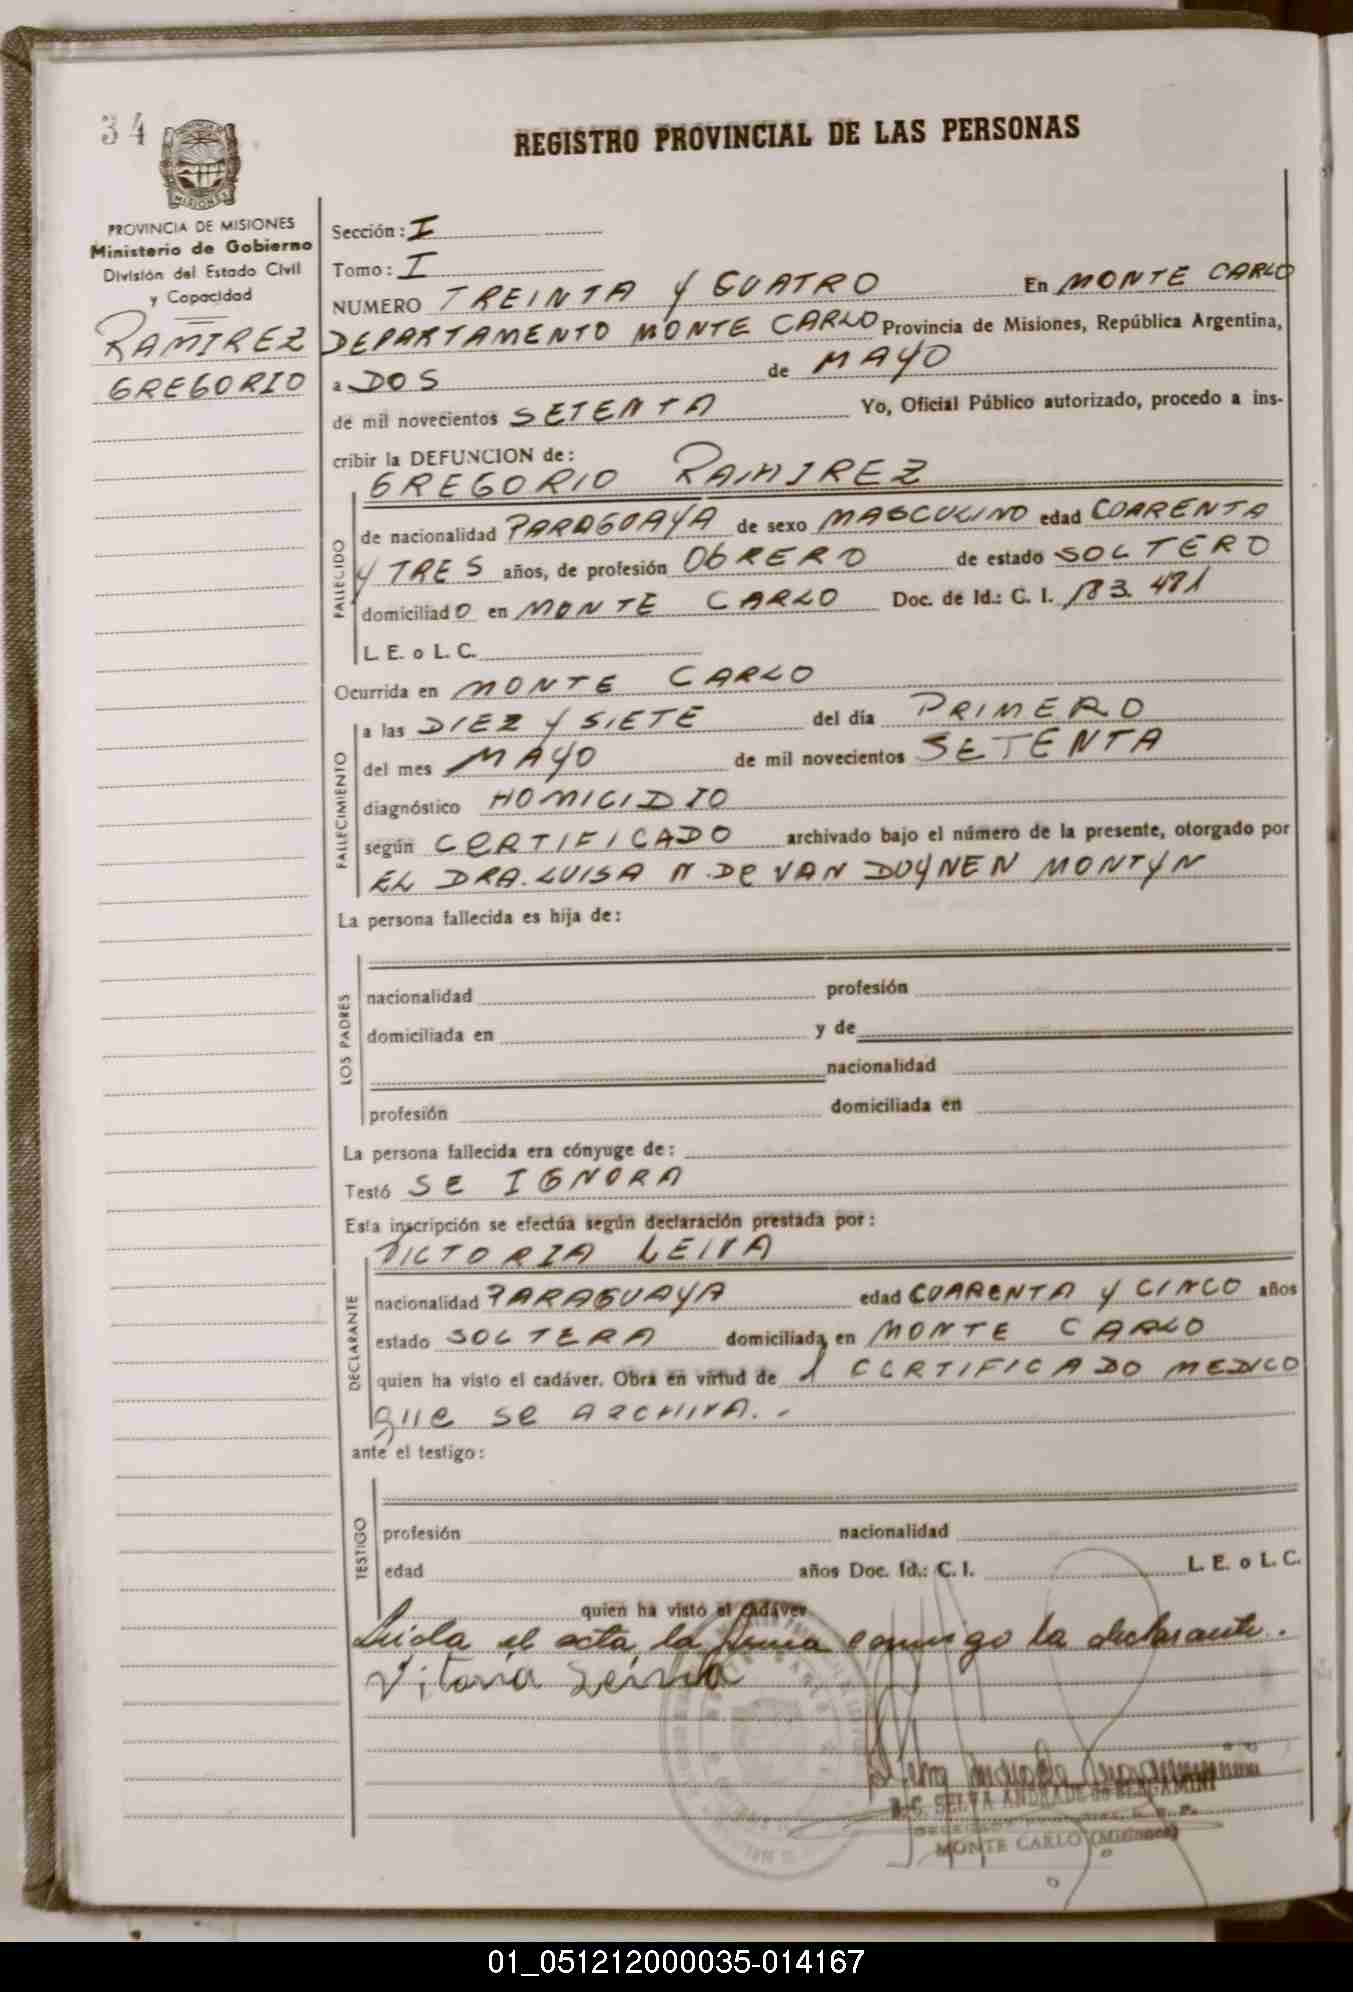 34
REGISTRO PROVINCIAL DE LAS PERSONAS
MISIONES
PROVINCIA DE MISIONES
Ministerio de Gobierno
División del Estado Civil
y Capacidad
RAMIREZ
GREGORIO
Sección: I
Tomo: I
NUMERO TREINTA Y CUATRO En MONTE CARLO
DEPARTAMENTO MONTE CARLO Provincia de Misiones, República Argentina,
a DOS de MAYO
de mil novecientos SETENTA Yo, Oficial Público autorizado, procedo a ins-
cribir la DEFUNCION de:
GREGORIO RAMIREZ
FALLECIDO
de nacionalidad PARAGUAYA de sexo MASCULINO edad CUARENTA
Y TRES años, de profesión ObRERO de estado SOLTERO
domiciliadO en MONTE CARLO Doc. de Id.: C. I. 183.481
L. E. o L. C.
Ocurrida en MONTE CARLO
FALLECIMIENTO
a las DIEZ Y SIETE del día PRIMERO
del mes MAYO de mil novecientos SETENTA
diagnóstico HOMICIDIO
según CeRTIFICADO archivado bajo el número de la presente, otorgado por
EL DRA. LUISA N. De VAN DUYNEN MONTYN
La persona fallecida es hija de:
LOS PADRES
nacionalidad profesión
domiciliada en y de
nacionalidad
profesión domiciliada en
La persona fallecida era cónyuge de:
Testó SE IGNORA
Esta inscripción se efectúa según declaración prestada por:
VICTORIA LEIVA
DECLARANTE
nacionalidad PARAGUAYA edad CUARENTA Y CINCO años
estado SOLTERA domiciliada en MONTE CARLO
quien ha visto el cadáver. Obra en virtud de CERTIFICADO MEDICO
que se ARCHIVA.-
ante el testigo:
TESTIGO
profesión nacionalidad
edad años Doc. Id.: C. I. L. E. o L. C.
quien ha visto el cadáver
Leida el acta la firma conmigo la declarante.
Vitoria Leiva
SELVA ANDRADE de BERGAMINI
MONTE CARLO (Misiones)
01_051212000035-014167